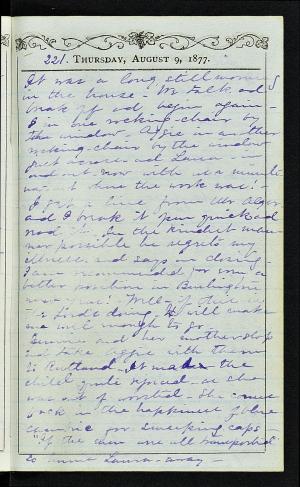 221. THURSDAY, AUGUST 9, 1877.
It was a long still morning
in the house - We talk and
break off and begin again -
I in one rocking-chair by
the window - Aggie in another
rocking-chair by the window
and Laura in
and out now with us a minute
the work was! -
I get a line from Mr Alger
and I break it open quick and
read it. In the kindest
manner possible he regrets my
illness and says in closing -
I am recommended for
a better position in Burlington
next year! Well - if this
is God's doing, It will make
me well enough to go.
and her mother stop
and take Aggie with them
to Rutland. It made the
child quite as she
was out of worsted. She comes
back in the happiness of blue
cambric for sweeping caps -
"If the are all transported
Laura - away -